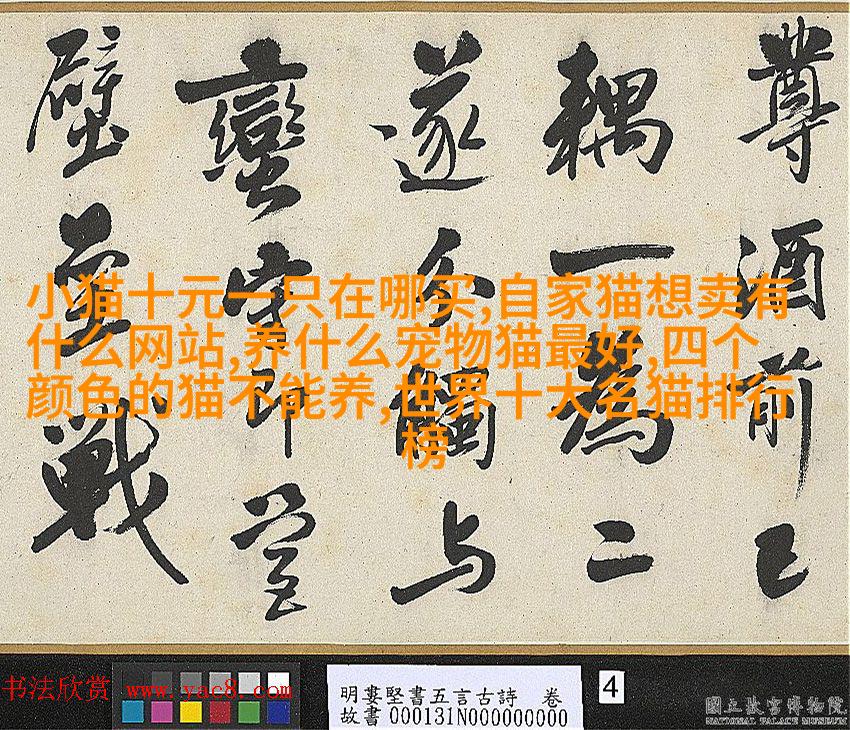 尊酒前已
耦一為二
遂分觸与
蠻守即營
壁壘戰
小猫十元一只在哪买,自家猫想卖有
什么网站,养什么宠物猫最好,四个
颜色的猫不能养,世界十大名猫排行
榜
书法欣赏 www.yac8.com
明婁堅書五言古詩 卷
故書000131N000000000
4
國立故宮博物院
NATIONAL PALACE MUSEUM